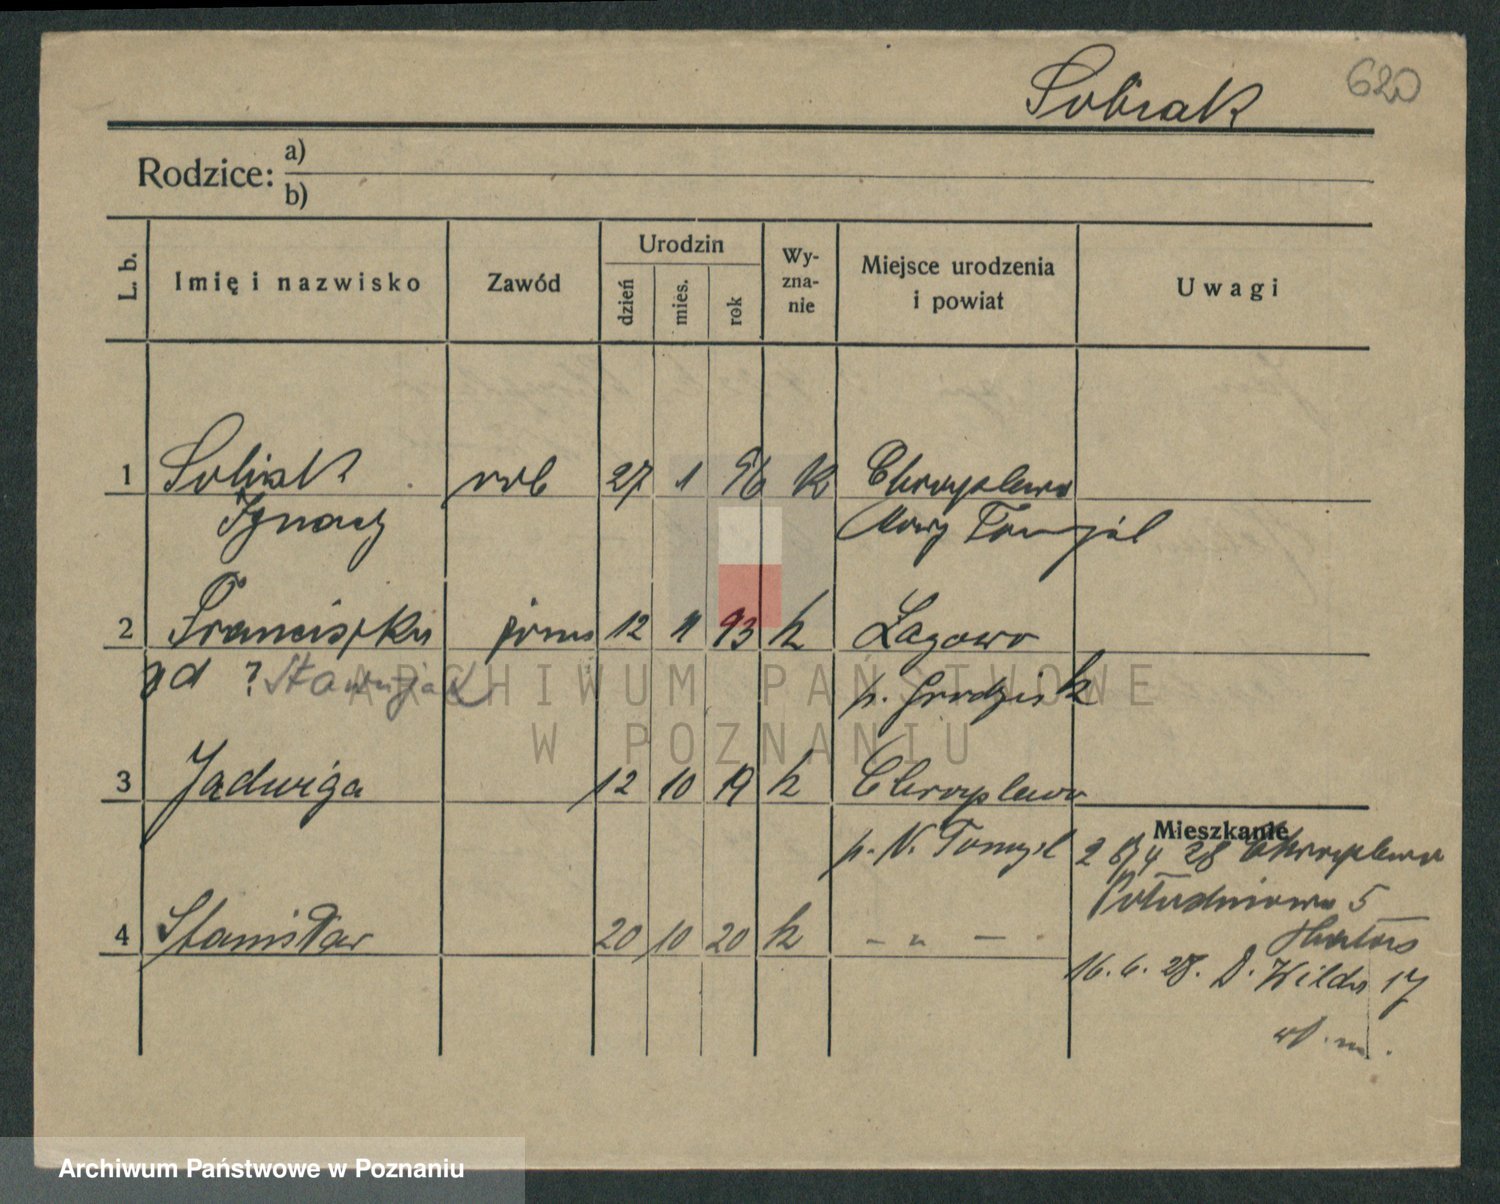 620
Sobiak
Rodzice: a)
b)
L. b.
Imię i nazwisko
Zawód
Urodzin
dzień
mies.
rok
Wy-
zna-
nie
Miejsce urodzenia
i powiat
Uwagi
1 Sobiak rob 27 1 96 k Chraplewo
Ignacy Nowy Tomyśl
2 Franciszka 12 11 93 k Łagowo
zd ? p. Grodzisk
3 Jadwiga 12 10 19 k Chraplewo
p. N. Tomyśl
Mieszkanie
28 Chraplewo
Południowa 5
4 Stanisław 20 10 20 k – „ –
16. 6. 28. D. Wilda 17
ARCHIWUM PAŃSTWOWE
W POZNANIU
Archiwum Państwowe w Poznaniu